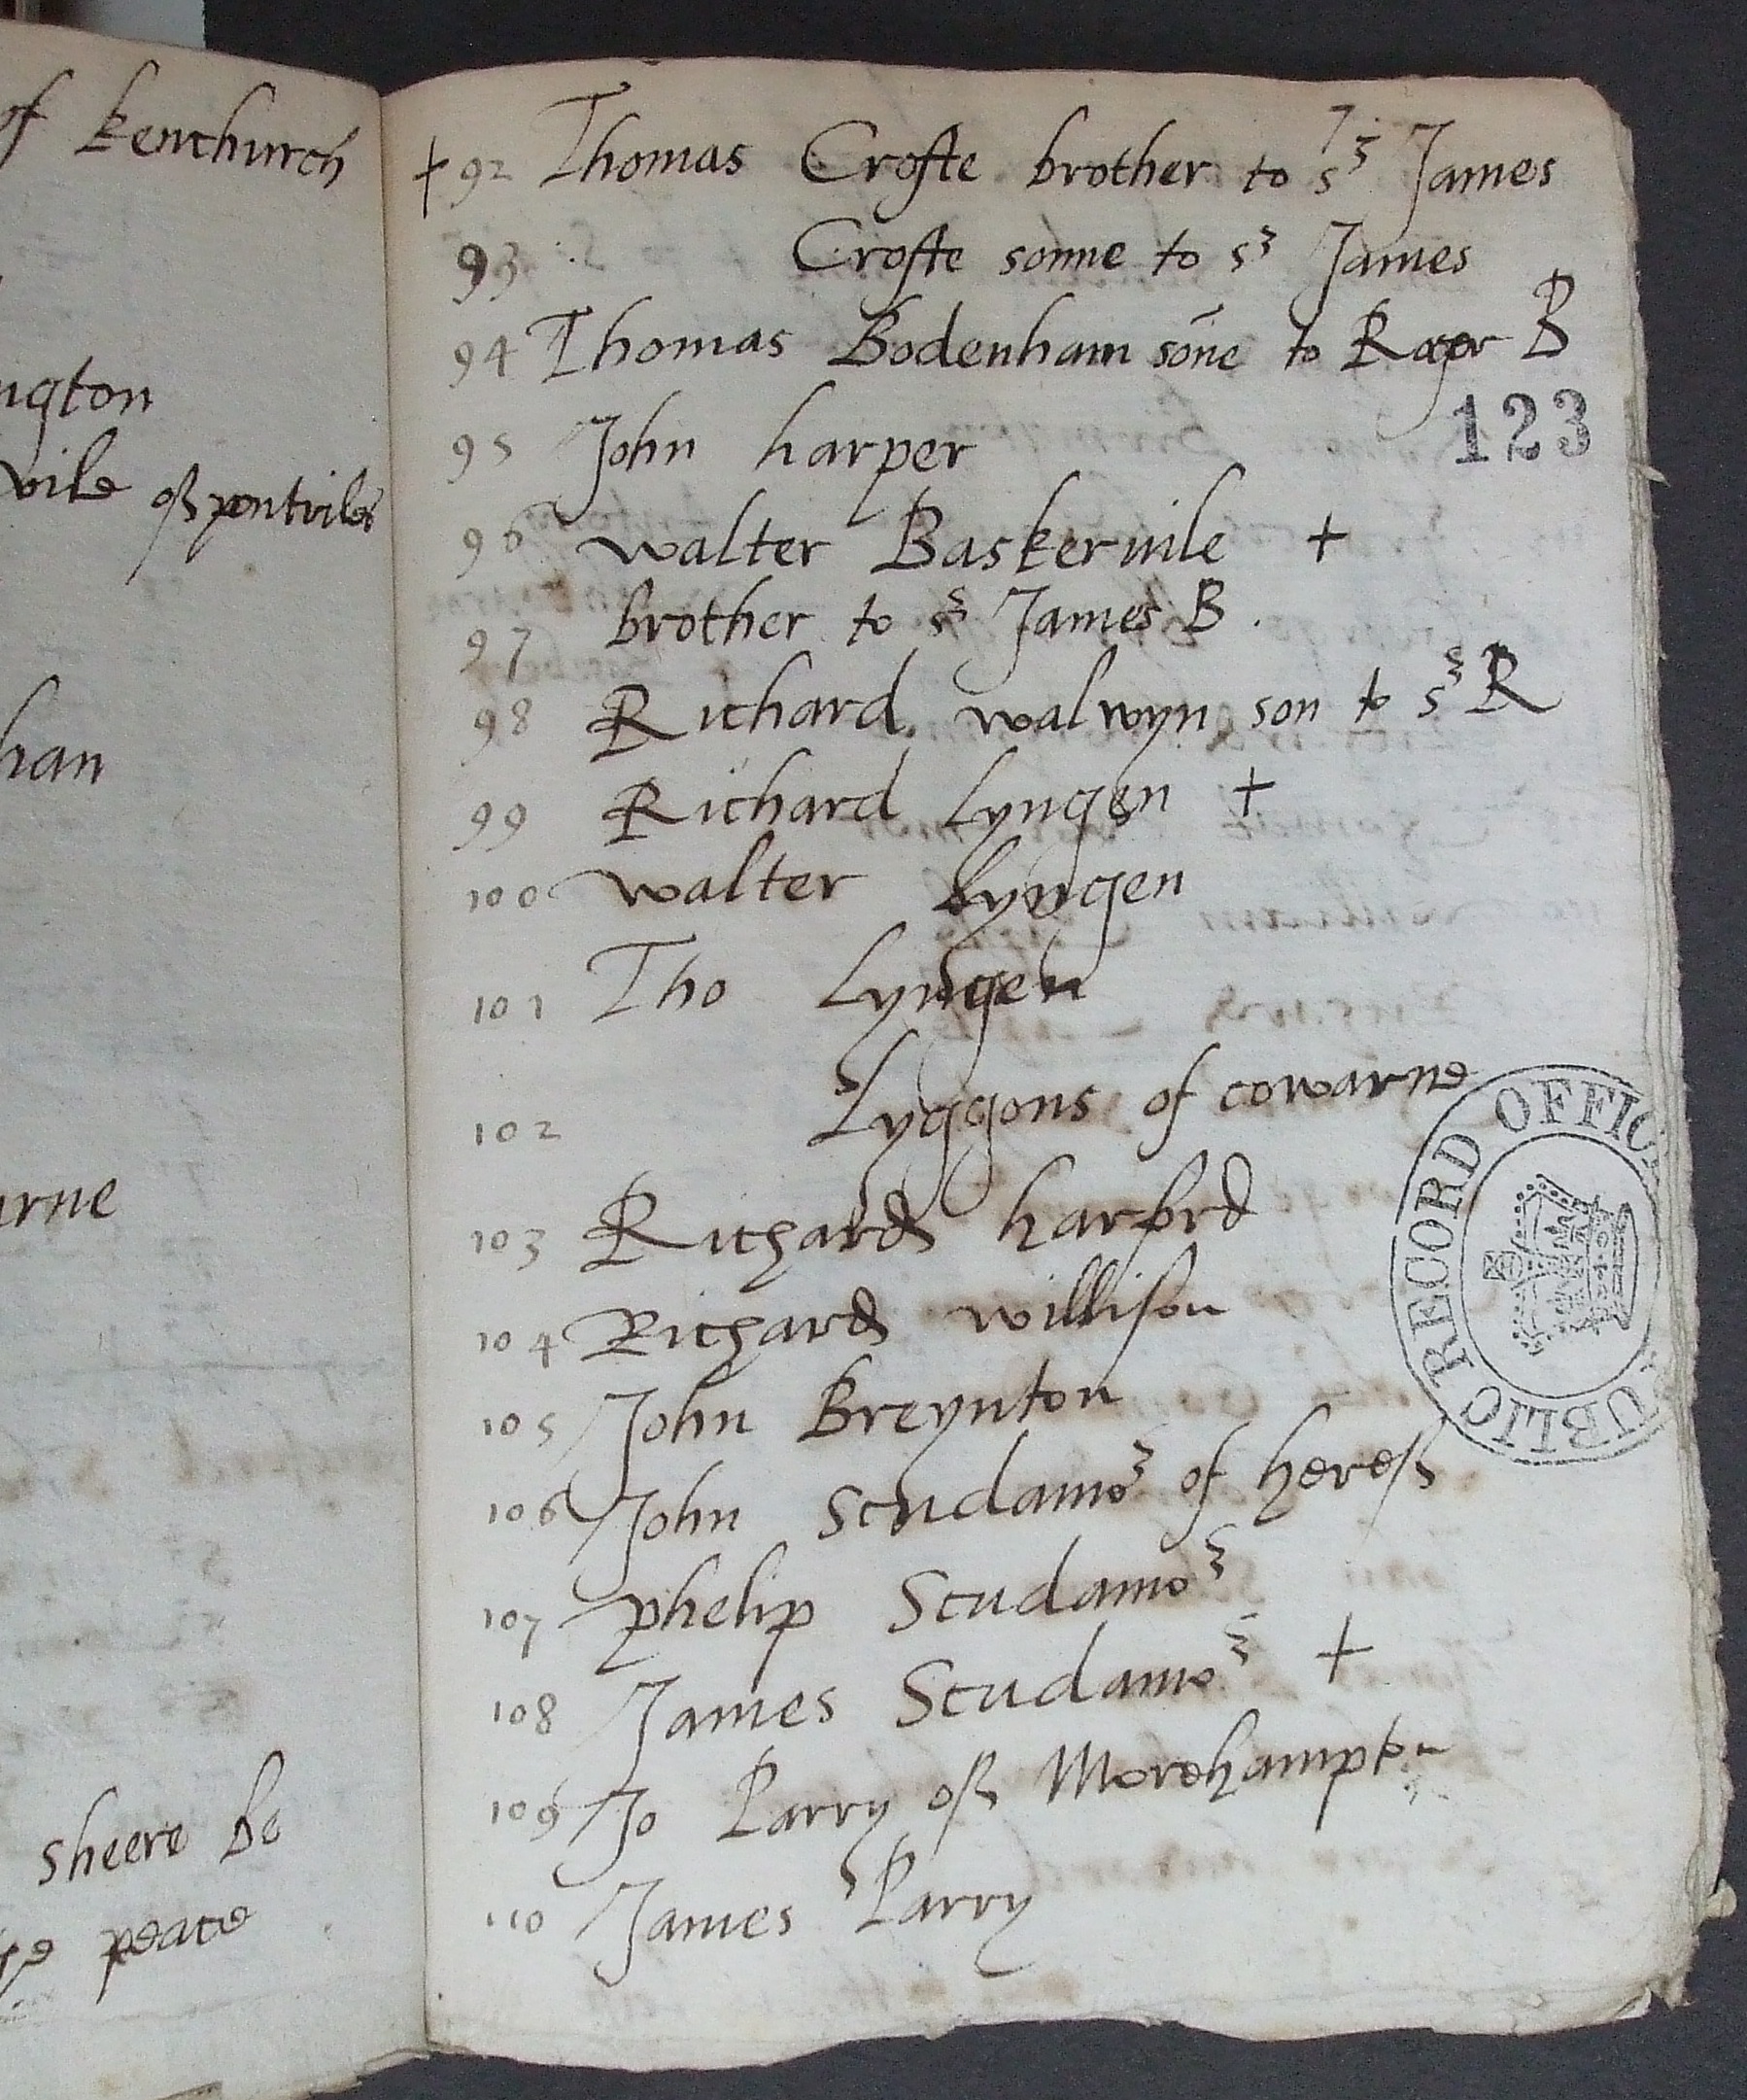 of kenchurch
ngton
vile of pontrilas
han
arne
sheere be
peace
+ 92 Thomas Crofte brother to sr James
93 Crofte sonne to sr James
94 Thomas Bodenham sōne to Roger B
123
95 John harper
96 walter Baskervile +
97 brother to sr James B .
98 Richard walwyn son to sr R
99 Richard Lyngen +
100 walter Lyngen
101 Tho Lyngen
102 Lyggons of cowarne
103 Richard harford
104 Richard willison
105 John Breynton
106 John Scudamor of heref
107 phelip Scudamor
108 James Scudamor +
109 Jo Parry of Morehampton
110 James Parry
PUBLIC RECORD OFFICE